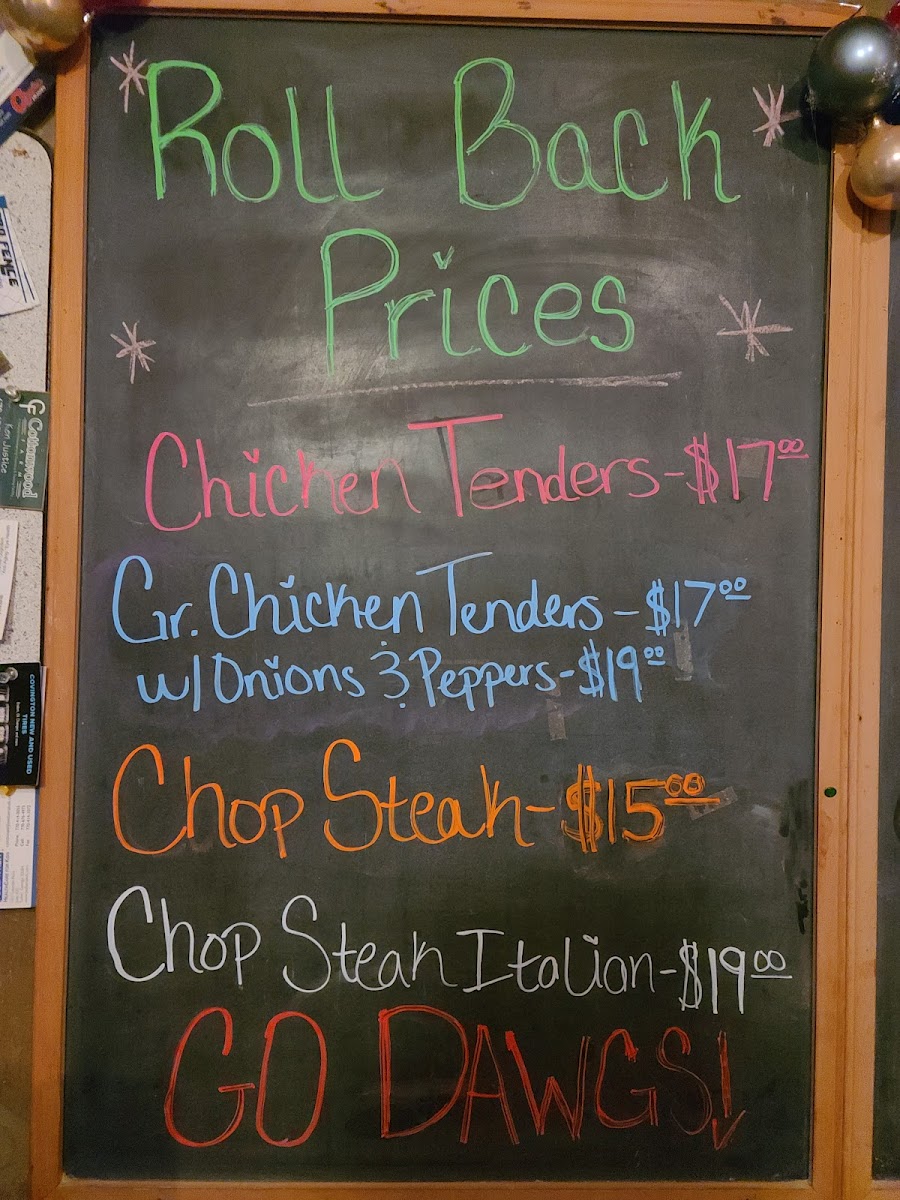 Roll Back
Prices
Chicken Tenders-$17.00
Gr. Chicken Tenders-$17.00
w/ Onions & Peppers-$19.00
Chop Steak-$15.00
Chop Steak Italian-$19.00
GO DAWGS!
Cottonwood
FARMS
Ken Justice
COVINGTON NEW AND USED
TIRES
FENCE